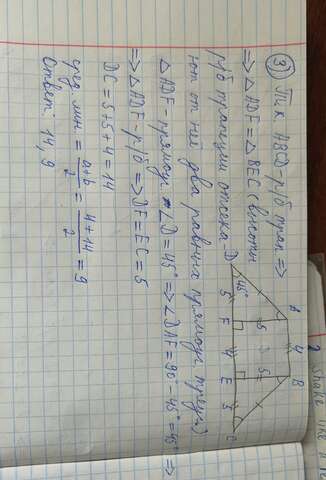 ③ Т.к ABCD-р/б трап =>
=> △ADF = △BEC (высоты
р/б трапеции отсека-
ют от неё два равных прямоуг. треуг.)
△ADF-прямоуг. ∠D = 45° => ∠DAF = 90° - 45° = 45° =>
=> △ADF - р/б => DF = EC = 5
DC = 5 + 5 + 4 = 14
сред. лин = a+b/2 = 4+14/2 = 9
Ответ: 14, 9
A 4 B
45° 5 5
D 5 F 4 E 5 C